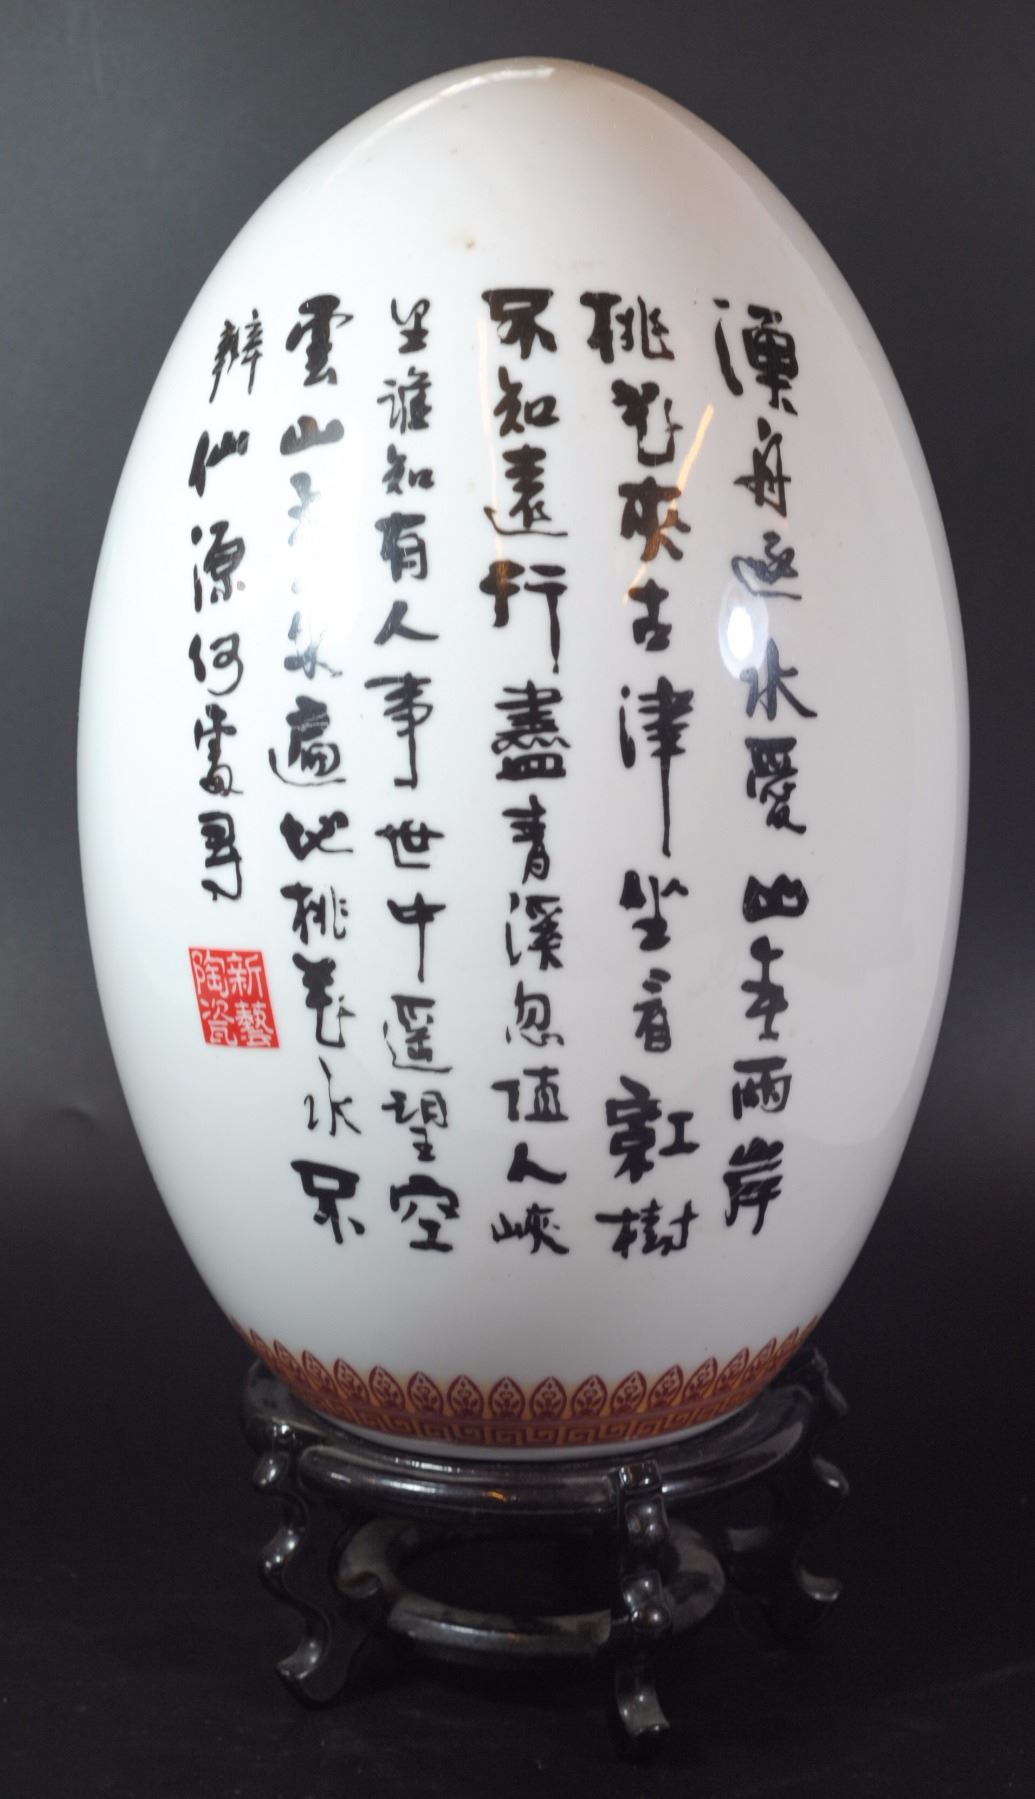 漁舟逐水愛山春兩岸
桃花夾古津坐看紅樹
不知遠行盡青溪忽值人峽
里誰知有人事世中遥望空
雲山春來遍地桃花水不
辨仙源何處尋
新藝
陶瓷